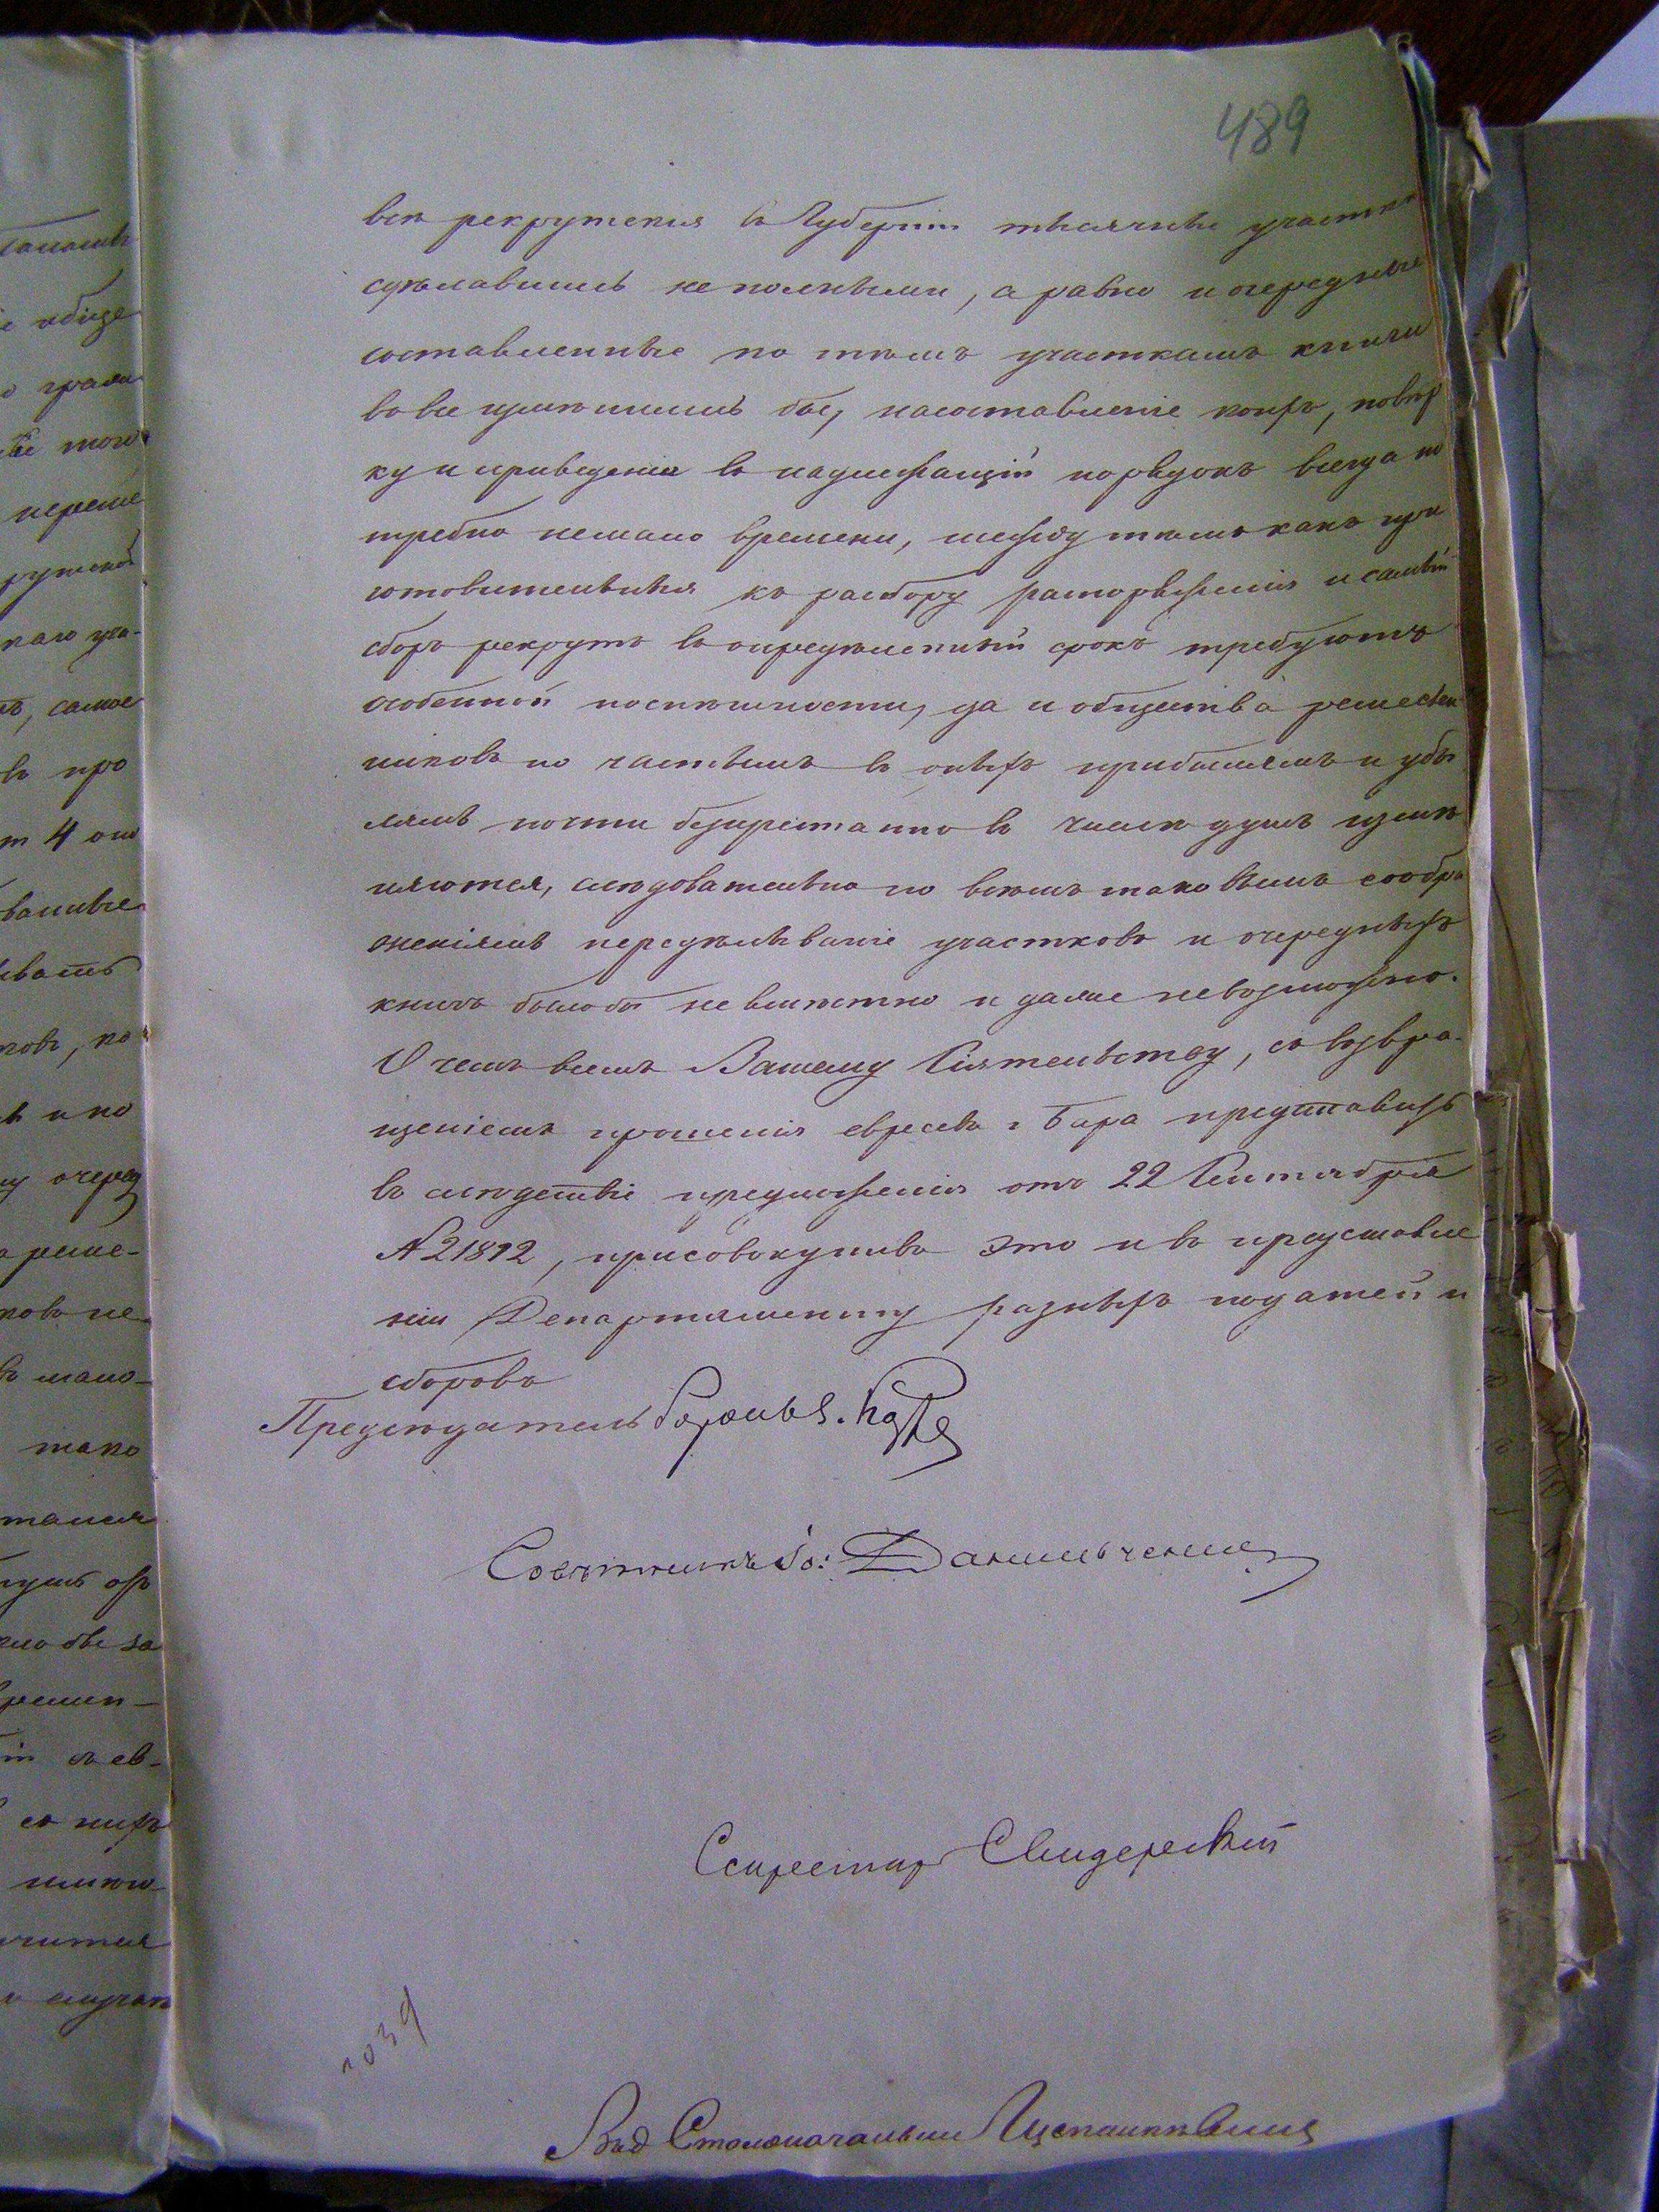 489
все рекрутскія въ Губерніи тысячные участки
сдѣлавшись неполными, а равно и очередные
составленные по тѣмъ участкамъ книги
вовсе измѣнились бы, на составленіе коихъ, повѣр
ку и приведеніе въ надлежащій порядокъ всегда по
требно немало времени, между тѣмъ какъ при
готовительныя къ разбору распоряженія и самый
сборъ рекрутъ въ опредѣленный срокъ требуютъ
особенной поспѣшности, да и общества ремеслен
никовъ по частымъ въ оныхъ прибылямъ и убы
лямъ почти безпрестанно въ числѣ душъ измѣ
няются, слѣдовательно по всѣмъ таковымъ сообра
женіямъ передѣлываніе участковъ и очередныхъ
книгъ было бы невмѣстно и даже невозможно.
О чемъ всемъ Вашему Сіятельству, съ возвра-
щеніемъ прошенія евреевъ г Бара представивъ
въ слѣдствіе предложенія отъ 22 Сентября
№ 21812, присовокупивъ это и въ представле
ніи Департаменту разныхъ податей и
сборовъ
Предсѣдатель
Совѣтникъ Данильченко
Секретарь Свидерскій
1039
Столоначальн
банов
и обще
перене
само
въ про
4
ванные
по
и по
очеред
реме-
мало-
тако
съ ев-
съ нихъ
случаѣ